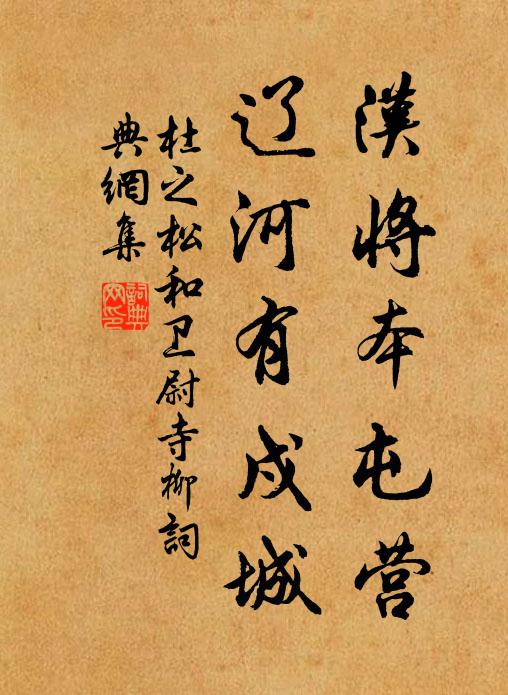 漢将本屯营
辽河有戍城
杜之松和卫尉寺柳詞
典網集
詞典網印